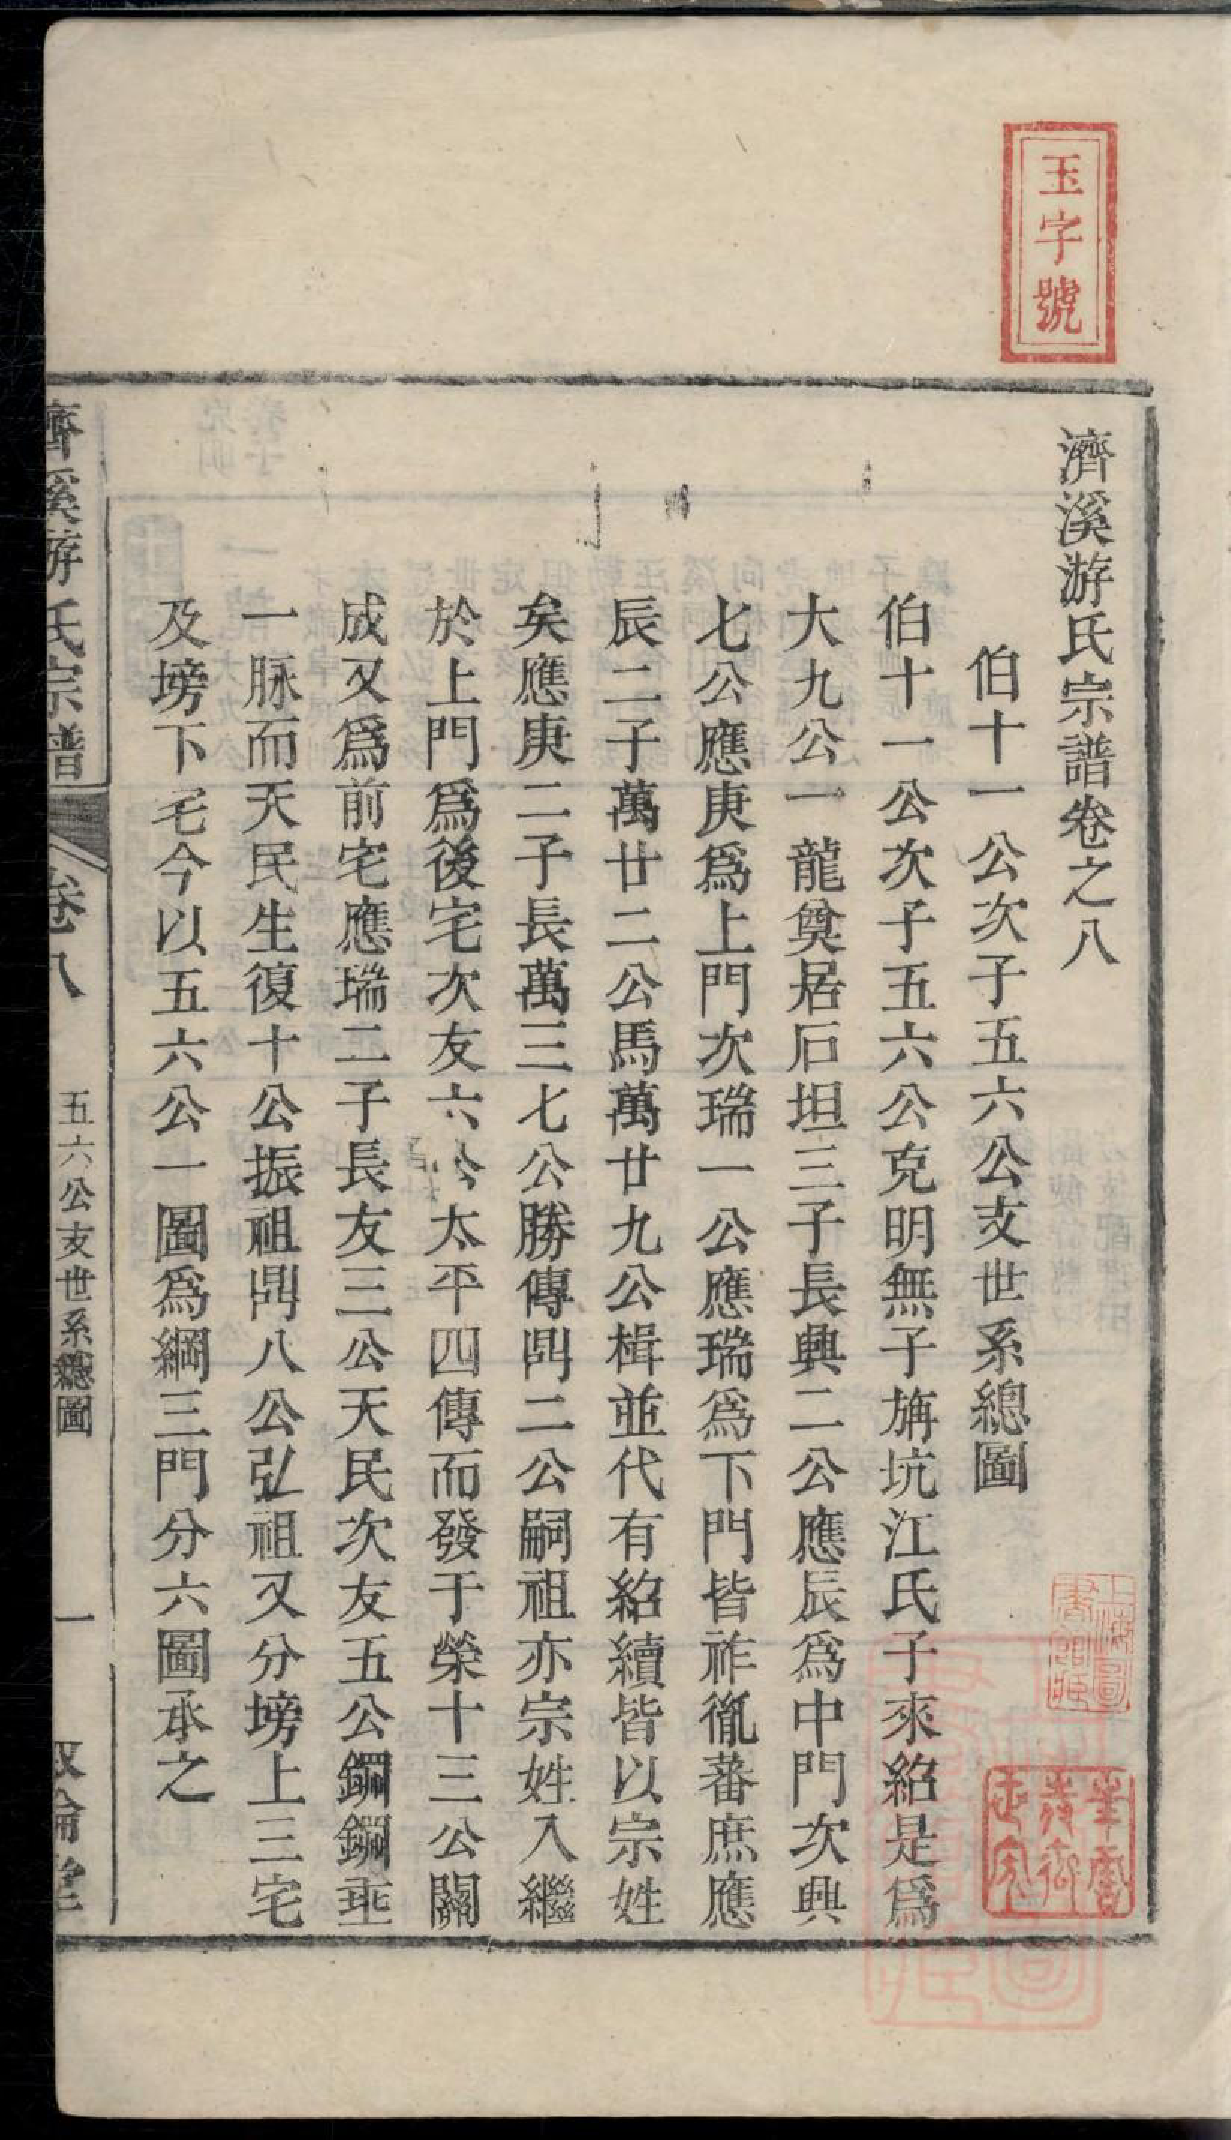 玉字號
濟溪游氏宗譜卷之八
伯十一公次子五六公支世系總圖
伯十一公次子五六公克明無子旃坑江氏子來紹是爲
大九公一龍奠居石坦三子長興二公應辰爲中門次興
七公應庚爲上門次瑞一公應瑞爲下門皆祚胤蕃庶應
辰二子萬廿二公馬萬廿九公楫並代有紹續皆以宗姓
矣應庚二子長萬三七公勝傳鼎二公嗣祖亦宗姓入繼
於上門爲後宅次友六公太平四傳而發于榮十三公關
成又爲前宅應瑞二子長友三公天民次友五公鋼鋼乖
一脉而天民生復十公振祖鼎八公弘祖又分塝上三宅
及塝下宅今以五六公一圖爲綱三門分六圖承之
濟溪游氏宗譜
卷八
五六公支世系總圖
一
叙倫堂
上海圖書館藏